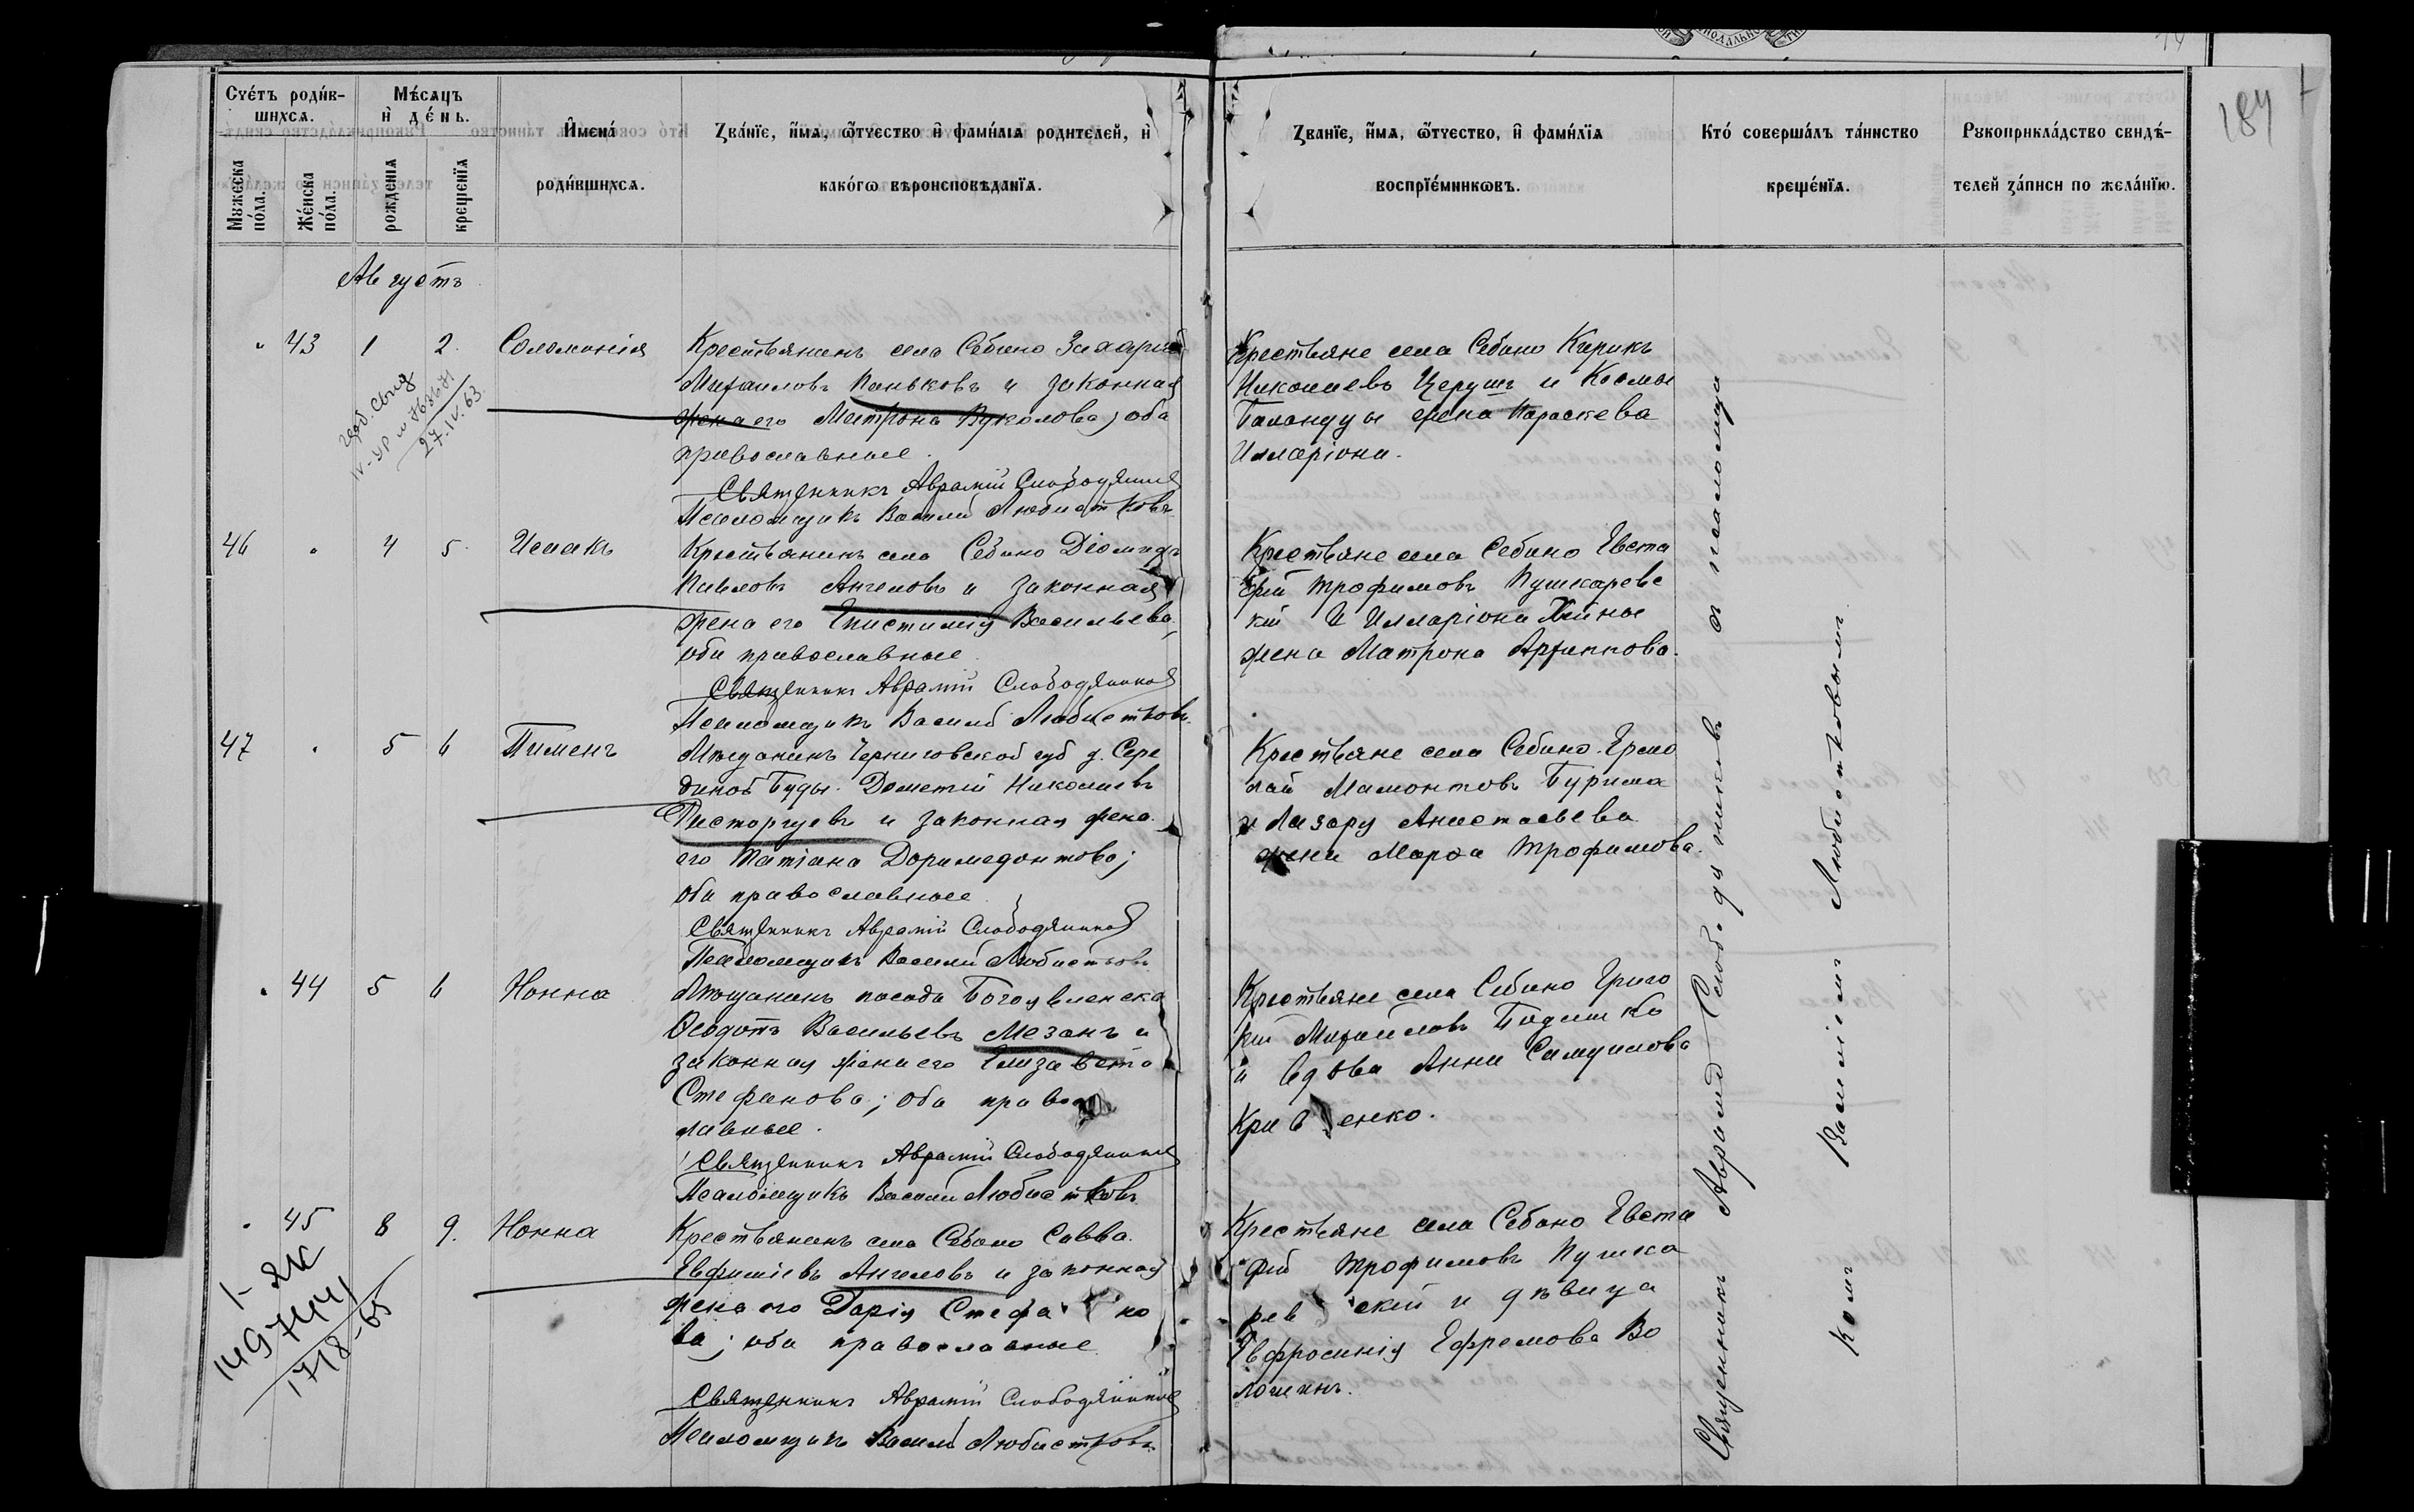 184
Счетъ родив-
шихся.
Мѣсяцъ
и день.
Мужеска
пола.
Женска
пола.
рожденія
крещенія
Имена
родившихся.
Званіе, имя, отчество и фамилія родителей, и
какого вѣроисповѣданія.
Званіе, имя, отчество, и фамилія
воспріемниковъ.
Кто совершалъ таинство
крещенія.
Рукоприкладство свидѣ-
телей записи по желанію.
Августъ
" 43 1 2. Соломонія
Крестьянинъ села Себино Захарій
Михаиловъ Паньковъ и законная
жена его Матрона Вуколова; оба
православные.
Священникъ Аврамій Слободяников
Псаломщикъ Василій Любистковъ
Крестьяне села Себино Кирикъ
Николаевъ Церушъ и Космы
Баландуы жена Параскева
Илларіони.
27.IV.63.
46 " 4 5. Исаакъ
Крестьянинъ села Себино Діомидъ
Павловъ Ангеловъ и законная
жена его Епистимія Васильева
оба православные
Священникъ Аврамій Слободяников
Псаломщикъ Василій Любистковъ
Крестьяне села Себино Евста
фій Трофимовъ Пушкаревс
кій и Илларіона
жена Матрона Архиппова.
47 " 5 6 Пименъ
Мѣщанинъ Черниговской губ д. Сере
диной Буды Дометій Николаевъ
Расторгуевъ и законная жена
его Татіана Доримедонтова;
оба православные
Священникъ Аврамій Слободяников
Псаломщикъ Василій Любистковъ
Крестьяне села Себино Ермо
лай Мамонтовъ Бурима
и Лазаря Анастасьева
жена Марѳа Трофимова.
" 44 5 6 Нонна
Мѣщанинъ посада Богоявленска
Ѳеодотъ Васильевъ Мезанъ и
законная жена его Елизавета
Стефанова; оба правос
лавные.
Священникъ Аврамій Слободяников
Псаломщикъ Василій Любистковъ
Крестьяне села Себино Григо
рій Михаиловъ Бидишко
и вдова Анна Самуилова
Крив енко.
" 45 8 9. Нонна
Крестьянинъ села Себино Савва
Евфиміевъ Ангеловъ и законная
жена его Дарія Стефано
ва; оба православные
Священникъ Аврамій Слободяников
Псаломщикъ Василій Любистковъ
Крестьяне села Себино Евста
фій Трофимовъ Пушка
рев скій и дѣвица
Евфросинія Ефремова Во
лошинъ.
I-ЯК
1497441
17 18-65
Священникъ Аврамій Слободяниковъ съ псаломщи
комъ Василіемъ Любистковымъ